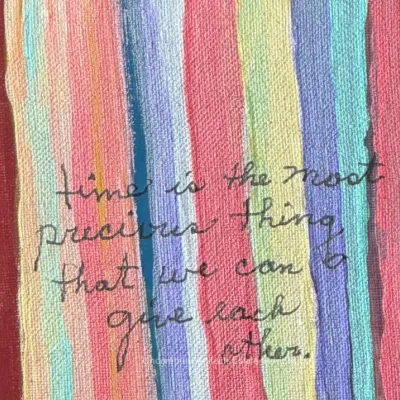 time is the most
precious thing
that we can
give each
other.